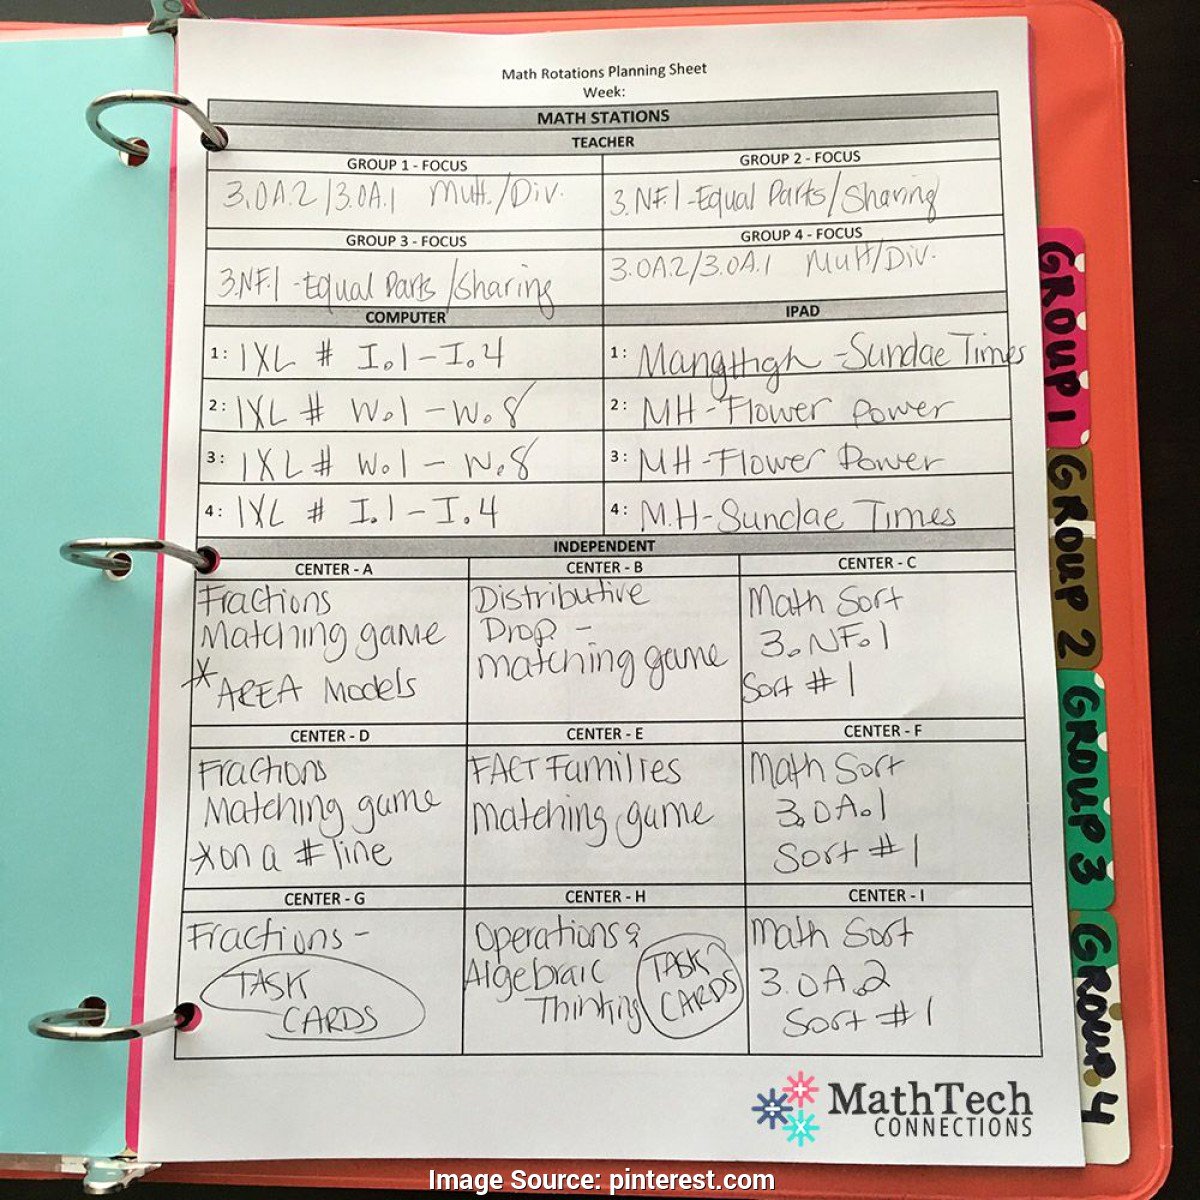 Math Rotations Planning Sheet
Week:
MATH STATIONS
TEACHER
GROUP 1 - FOCUS
3.OA.2/3.OA.1 Mult./Div.
GROUP 2 - FOCUS
3.NF.1-Equal Parts/Sharing
GROUP 3 - FOCUS
3.NF.1-Equal Parts/Sharing
GROUP 4 - FOCUS
3.OA.2/3.OA.1 Mult/Div.
COMPUTER
1: IXL # I.1-I.4
2: IXL # W.1-W.8
3: IXL # W.1-W.8
4: IXL # I.1-I.4
IPAD
1: MangHigh-Sundae Times
2: MH-Flower Power
3: MH-Flower Power
4: M.H-Sundae Times
INDEPENDENT
CENTER - A
Fractions
Matching game
* AREA Models
CENTER - B
Distributive
Drop -
matching game
CENTER - C
Math Sort
3.NF.1
Sort #1
CENTER - D
Fractions
Matching game
*on a # line
CENTER - E
FACT Families
matching game
CENTER - F
Math Sort
3.OA.1
Sort #1
CENTER - G
Fractions -
TASK
CARDS
CENTER - H
Operations &
Algebraic
Thinking
TASK
CARDS
CENTER - I
Math Sort
3.OA.2
Sort #1
GROUP 1
GROUP 2
GROUP 3
GROUP 4
MathTech
CONNECTIONS
Image Source: pinterest.com